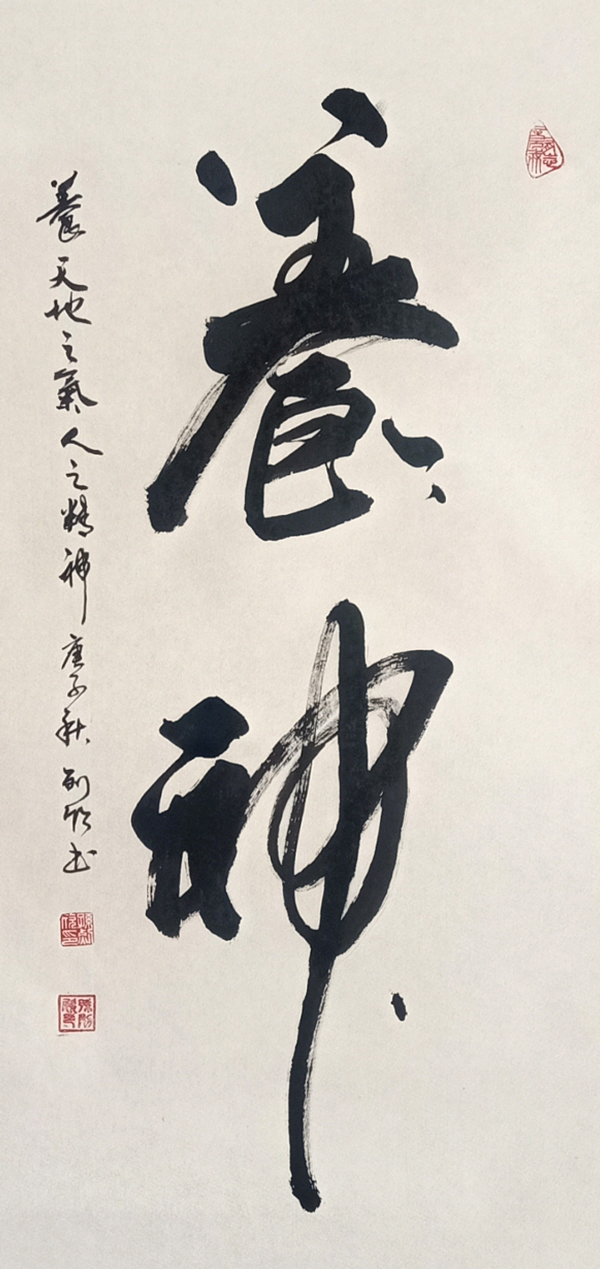 養神
養天地之氣人之精神庚子秋
書